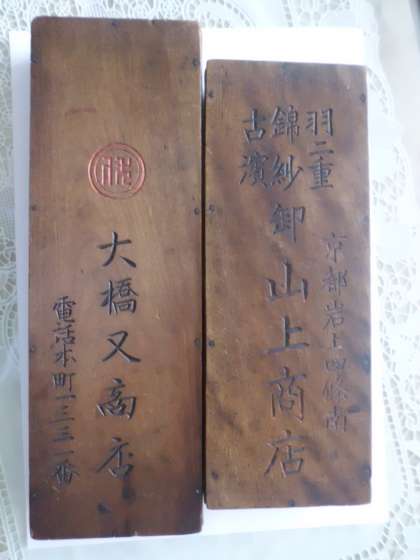 京都岩上四條南
羽二重
錦紗
古濱
卸山上商店
大橋又商店
電話本町一三三一番